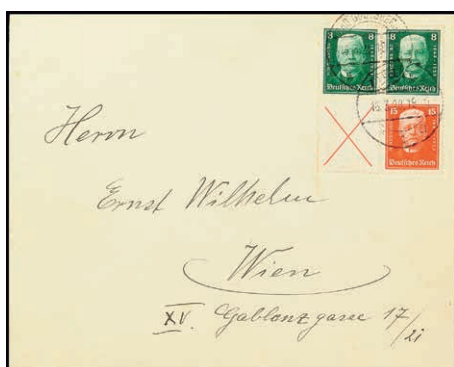 8 8 8 8
Deutsches Reich Deutsches Reich
15 15
Deutsches Reich
Herrn
Ernst Wilhelm
Wien
XV. Gablonzgasse 17/21